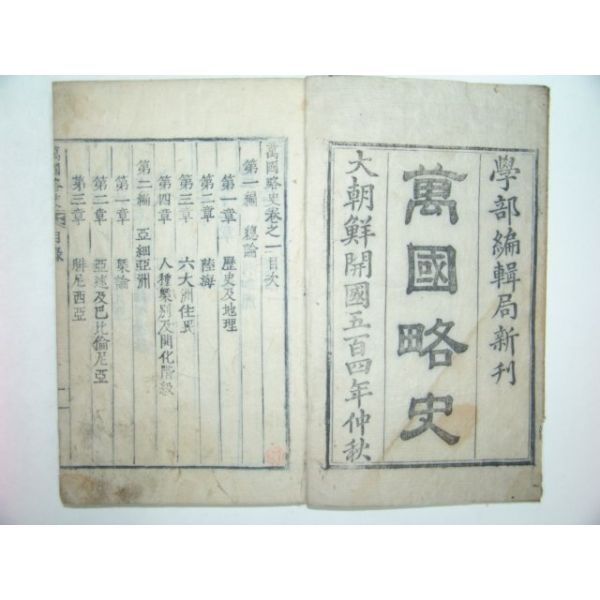 學部編輯局新刊
萬國略史
大朝鮮開國五百四年仲秋
萬國略史卷之一目次
第一編 總論
第一章 歷史及地理
第二章 陸海
第三章 六大洲住民
第四章 人種槩別及開化階級
第二編 亞細亞洲
第一章 槩論
第二章 亞述及巴比倫尼亞
第三章 腓尼西亞
萬國略史 目錄 一